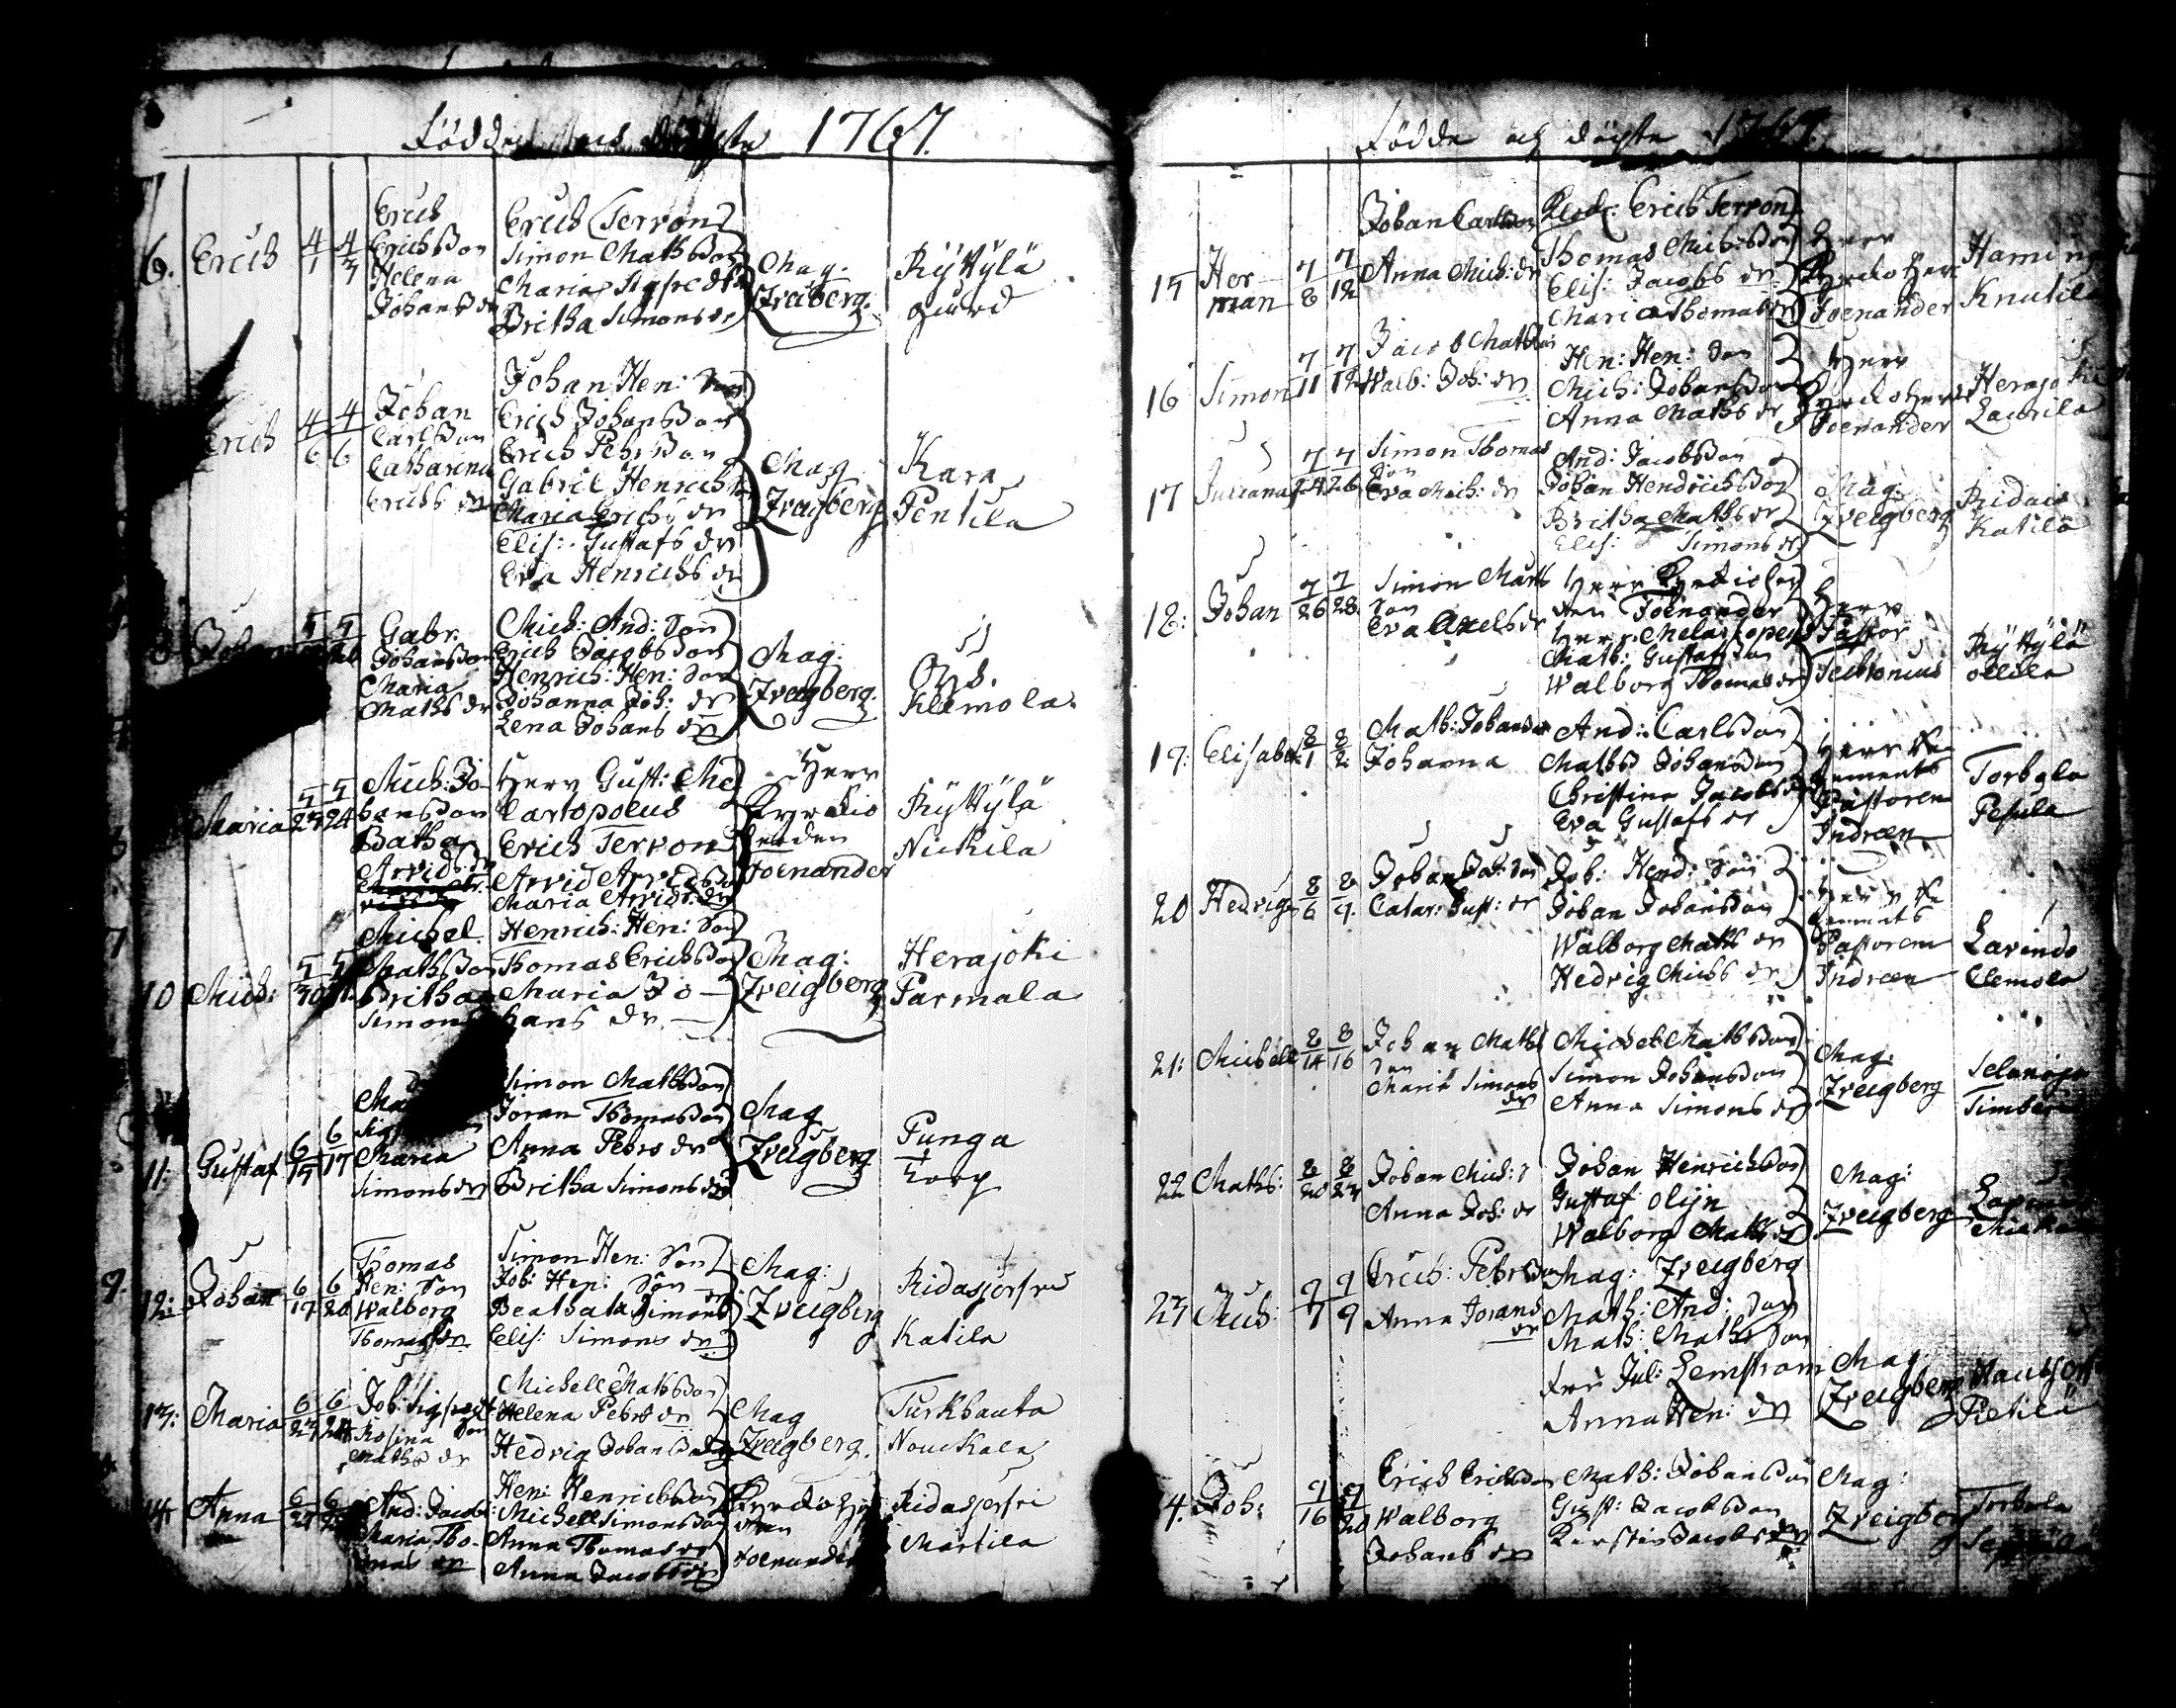 Födde och döpte 1767.
6. Erich 4/1 4/3
Erich
Erichsson
Helena
Johans dr
Erich Terron
Simon Mathsson
Maria Sigfreds dr
Britha Simons dr
Mag.
Zveigberg.
Ryttylä
gård
Erich 4/6 4/6
Johan
Carlsson
Catharina
Erichs dr
Johan Hen: son
Erich Johansson
Erich Pehrsson
Gabriel Henrichsson
Maria Erichs dr
Elis: Gustafs dr
Eva Henrichs dr
Mag
Zveigberg
Kara
Pentila
8
Gabr.
Johansson
Maria
Maths dr
Mich: And: son
Erich Jacobsson
Henrich: Hen: son
Johanna Joh: dr
Lena Johans dr
Mag:
Zveigberg.
Oja.
Klemola
Maria 5/23 5/24
Mich: Jo-
hansson
Arvids dr
Herr Gust: Me
lartopolus
Erich Terron
Arvid Arvidsson
Maria Arvids dr
Herr
Kyrkio
herden
Foenander
Ryttylä
Nickila
10 Mich: 5/30
Michel
Mathsson
Britha
Simons
Henrich: Hen: son
Thomas Erichsson
Maria Jo-
hans dr
Mag:
Zveigberg
Herajoki
Parmala
11: Gustaf 6/15 6/17
Maria
Simons dr
Simon Mathsson
Joran Thomasson
Anna Pehrs dr
Britha Simons dr
Mag
Zveigberg
Punga
torp
12: Johan 6/17 6/20
Thomas
Hen: son
Walborg
Thomas dr
Simon Hen: son
Joh: Hen: son
Simons dr
Elis: Simons dr
Mag:
Zveigberg
Ridasjerfvi
Katila
13: Maria 6/23 6/24
Joh: Sigfreds
son
Rosina
Maths dr
Michell Mathsson
Helena Pehrs dr
Hedvig Johans dr
Mag
Zveigberg.
Turkhauta
Nouckala
14 Anna
And: Jacobs:
Maria Tho-
mas dr
Hen: Henrichsson
Michell Simonsson
Anna Thomas dr
Anna Jacobs dr
Kyrkioher
den
Foenander
Ridasjerfvi
Martila
Födde och döpte 1767.
15 Her-
man 7/8 7/12
Johan Carlsson
Anna Mich: dr
Klock: Erich Terron
Thomas Mich:son
Elis: Jacobs dr
Maria Thomas dr
Herr
Kyrkioher
Foenander
Haming
Knutila
16 Simon 7/11 7/12
Jacob Mathsson
Walb: Joh: dr
Hen: Hen: son
Mich: Johansson
Anna Maths dr
Herr
Kyrkioherr
Foenander
Herajoki
Laurila
17 Juliana 7/24 7/26
Simon Thomas
son
Eva Mich: dr
And: Jacobsson
Johan Hendrichsson
Britha Maths dr
Elis: Simons dr
Mag:
Zveigberg
Katila
18: Johan 7/26 7/28
Simon Maths
son
Eva Axels dr
Herr Kyrkioher
den Foenander
Math: Gustafsson
Walborg Thomas dr
Herr
Pastor
Ryttylä
ollila
19: Elisabet 8/1 8/2
Math: Johansson
Johanna
And: Carlsson
Maths Johansson
Christina Jacobs dr
Eva Gustafs dr
Herr Re
gements
Pastoren
Indræn
Torhola
Pesula
20 Hedvig 8/6 8/9
Johan Joh: son
Catar: Gust: dr
Joh: Hend: son
Johan Johansson
Walborg Maths dr
Hedvig Michs dr
Herr Re
gements
Pastoren
Indræn
Clemola
21: Michell 8/14 8/16
Johan Maths
son
Maria Simons
dr
Michel Mathsson
Simon Johansson
Anna Simons dr
Mag:
Zveigberg
22 Maths: 8/20 8/23
Johan Mich: s
Anna Joh: dr
Johan Henrichsson
Gustaf Olijn
Walborg Maths dr
Mag:
Zveigberg
23 Mich: 9/7 9/9
Erich: Pehrsson
Anna Jorans
dr
Mag: Zveigberg
Math: And: son
Math: Maths son
Fru Jul: Lemstrom
Anna Hen: dr
Mag
Zveigberg
Pietilä
4. Joh: 9/16 9/20
Erich Erichsson
Walborg
Johans dr
Math: Johansson
Gust: Jacobsson
Kirstin Jacobs dr
Mag:
Zveigberg
Torhola